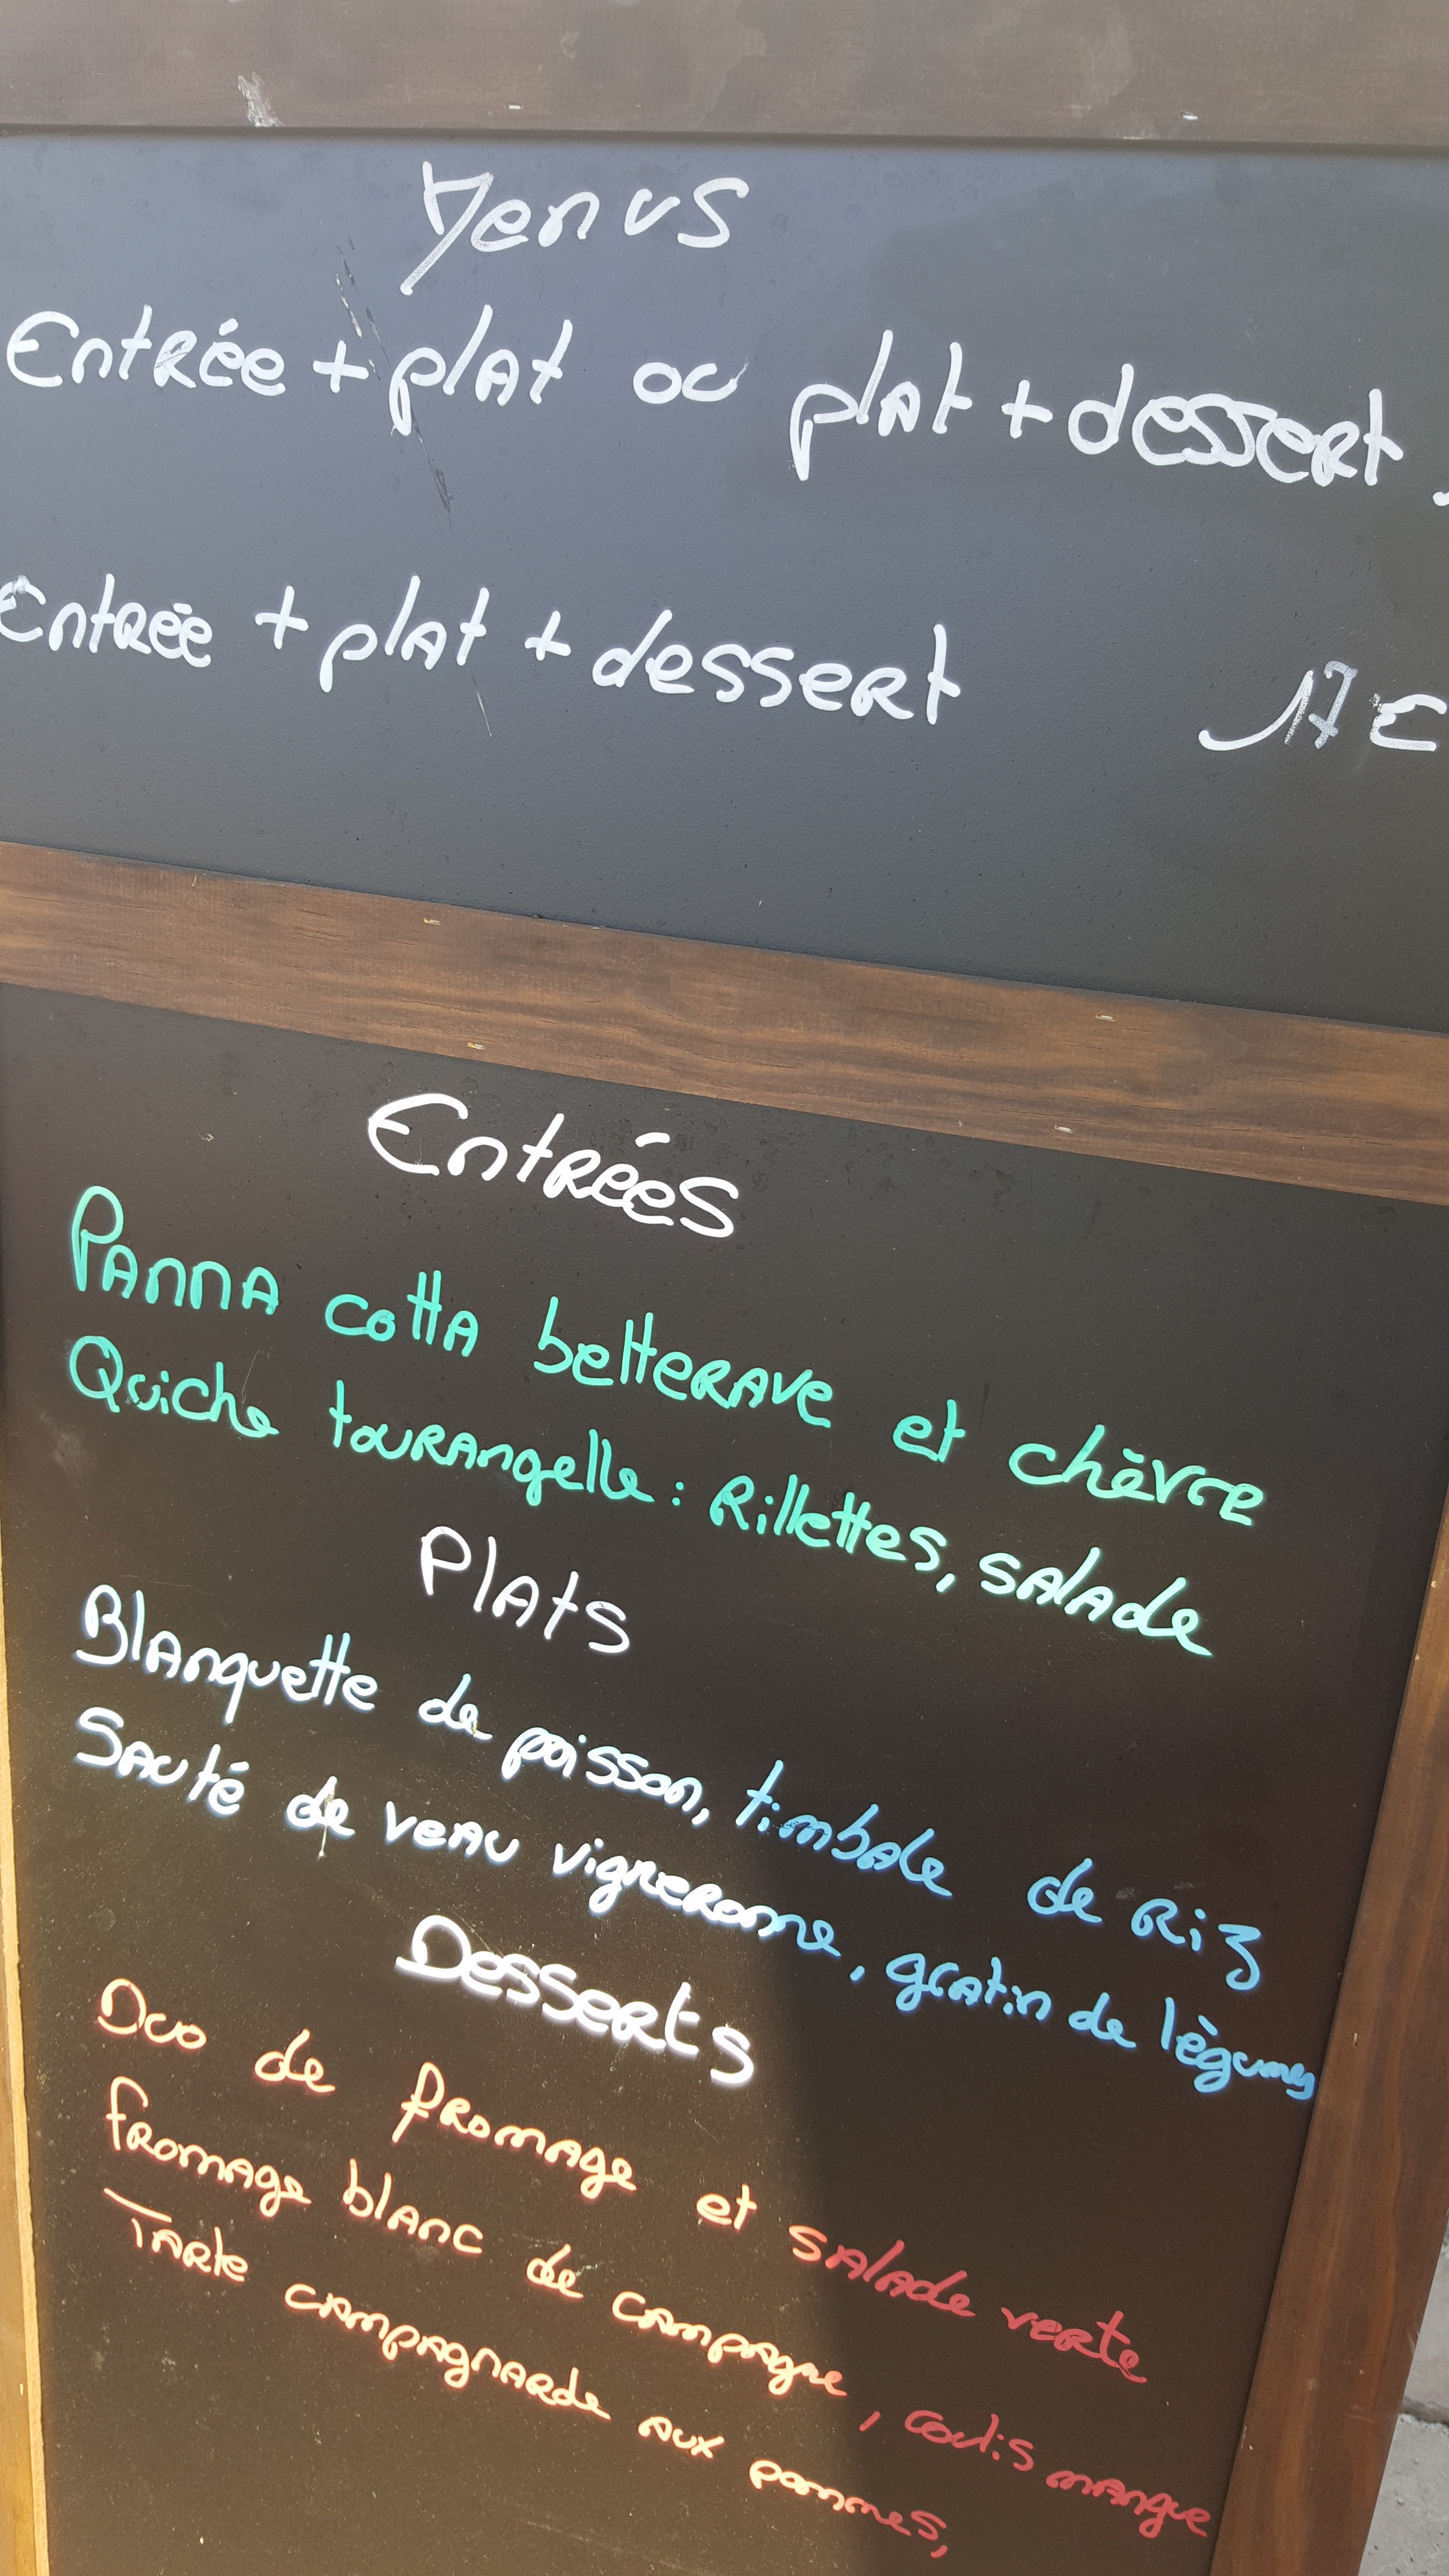 Menus
Entrée + plat ou plat + dessert
Entrée + plat + dessert 17€
Entrées
Panna cotta betterave et chèvre
Quiche tourangelle : Rillettes, salade
Plats
Blanquette de poisson, timbale de Riz
Sauté de veau vigneronne, gratin de lègumes
Desserts
Duo de fromage et salade verte
fromage blanc de campagne, coulis mangue
Tarte campagnarde aux pommes,